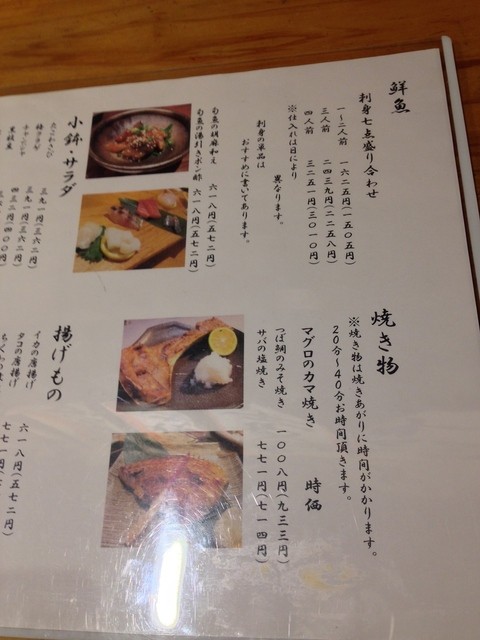 鮮魚
刺身七点盛り合わせ
一〜二人前 一六二五円(一五〇五円)
三人前 二四三九円(二二五八円)
四人前 三二五一円(三〇一〇円)
※仕入れは日により
異なります。
刺身の単品は
おすすめに書いてあります。
旬魚の胡麻和え 六一八円(五七二円)
旬魚の湯引きポン酢 六一八円(五七二円)
小鉢・サラダ
たこわさび 三九一円(三六二円)
梅クラゲ 三九一円(三六二円)
チャンジャ 四三二円(四〇〇円)
焼き物
※焼き物は焼きあがりに時間がかかります。
20分〜40分お時間頂きます。
マグロのカマ焼き 時価
つぼ鯛のみそ焼き 一〇〇八円(九三三円)
サバの塩焼き 七七一円(七一四円)
揚げもの
イカの唐揚げ 六一八円(五七二円)
タコの唐揚げ 七七一円(七